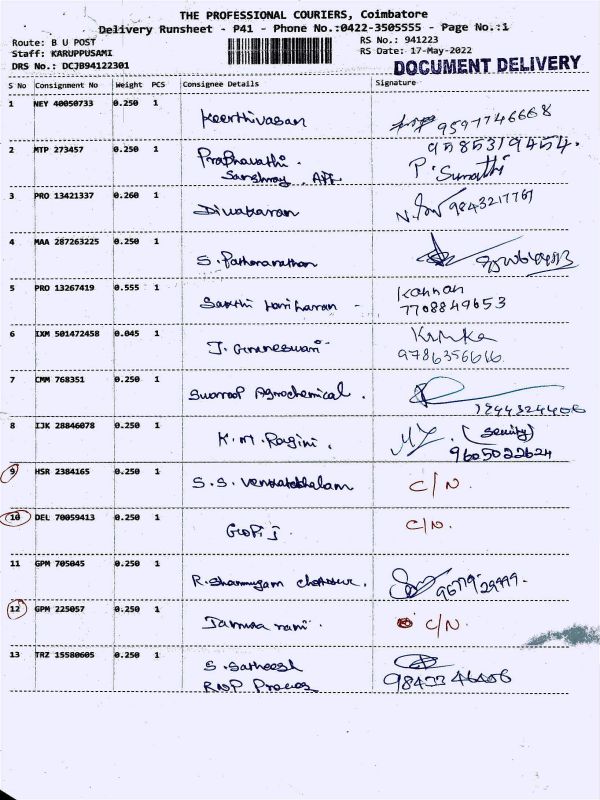 THE PROFESSIONAL COURIERS, Coimbatore
Delivery Runsheet - P41 - Phone No.:0422-3505555 - Page No.:1
Route: B U POST RS No.: 941223
Staff: KARUPPUSAMI RS Date: 17-May-2022
DRS No.: DCJB94122301 DOCUMENT DELIVERY
S No Consignment No Weight PCS Consignee Details Signature
1 NEY 40050733 0.250 1 Keerthivasan 9597746668
9585319454.
2 MTP 273457 0.250 1 Prabhavathi. P. Sumathi
3 PRO 13421337 0.260 1 Diwakaran 9843217767
4 MAA 287263225 0.250 1
5 PRO 13267419 0.555 1 Sakthi Hariharan - Kannan
7708849653
6 IXM 501472458 0.045 1 9786356616
7 CMM 768351 0.250 1 Swaroop Agrochemical.
8 IJK 28846078 0.250 1 K.M. Ragini.
9605022624
9 HSR 2384165 0.250 1 S.S. Venkatachalam C/N.
10 DEL 70059413 0.250 1 Gopi J C/N.
11 GPM 705045 0.250 1 R. Shanmugam
12 GPM 225057 0.250 1 C/N.
13 TRZ 15580605 0.250 1 S. Satheesh
RNP Process